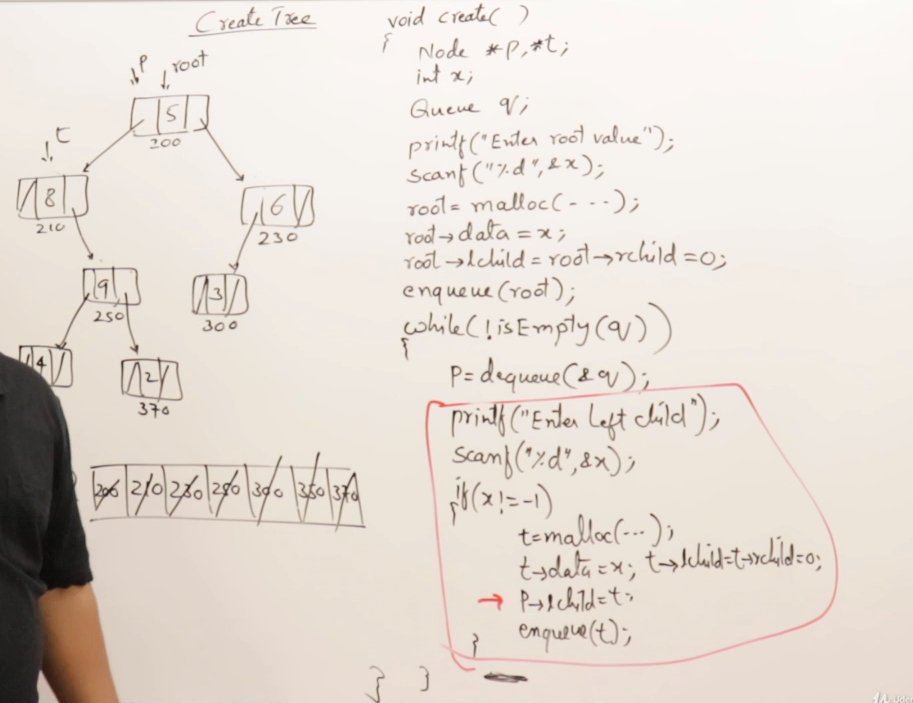 Create Tree
P root
5
200
t
8
210
6
230
9
250
3
300
4
2
370
200 210 230 250 300 350 370
void create( )
{
Node *p,*t;
int x;
Queue q;
printf("Enter root value");
scanf("%d",&x);
root= malloc(- - - -);
root→data = x;
root→lchild = root→rchild = 0;
enqueue(root);
while(!isEmpty(q))
{
P= dequeue(&q);
printf("Enter Left child");
scanf("%d",&x);
if(x!=-1)
{
t=malloc(---);
t→data=x; t→lchild=t→rchild=0;
→ P→lchild=t;
enqueue(t);
}
} }